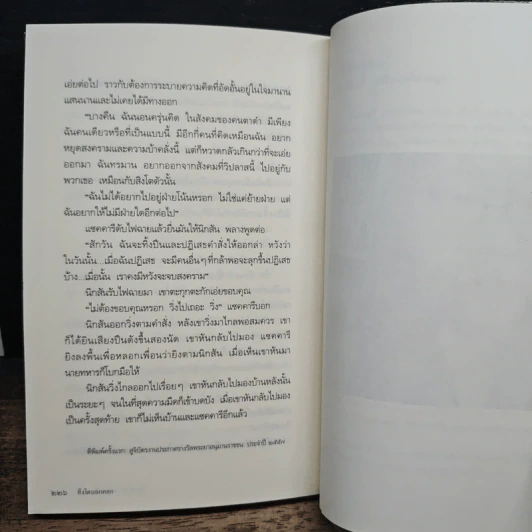 เอ่ยต่อไป ราวกับต้องการระบายความคิดที่อัดอั้นอยู่ในใจมานาน
แสนนานและไม่เคยได้มีทางออก
"บางคืน ฉันนอนครุ่นคิด ในสังคมของคนตาดำ มีเพียง
ฉันคนเดียวหรือที่เป็นแบบนี้ มีอีกกี่คนที่คิดเหมือนฉัน อยาก
หยุดสงครามและความบ้าคลั่งนี้ แต่ก็หวาดกลัวเกินกว่าที่จะเอ่ย
ออกมา ฉันทรมาน อยากออกจากสังคมที่วิปลาสนี้ ไปอยู่กับ
พวกเธอ เหมือนกับสิงโตตัวนั้น
"ฉันไม่ได้อยากไปอยู่ฝ่ายโน้นหรอก ไม่ใช่แค่ย้ายฝ่าย แต่
ฉันอยากให้ไม่มีฝ่ายใดอีกต่อไป"
แซคคารีดับไฟฉายแล้วยื่นมันให้นิกสัน พลางพูดต่อ
"สักวัน ฉันจะทิ้งปืนและปฏิเสธคำสั่งให้ออกล่า หวังว่า
ในวันนั้น...เมื่อฉันปฏิเสธ จะมีคนอื่นๆที่กล้าพอจะลุกขึ้นปฏิเสธ
บ้าง...เมื่อนั้น เราคงมีหวังจะจบสงคราม"
นิกสันรับไฟฉายมา เขาตะกุกตะกักเอ่ยขอบคุณ
"ไม่ต้องขอบคุณหรอก วิ่งไปเถอะ วิ่ง" แซคคารีบอก
นิกสันออกวิ่งตามคำสั่ง หลังเขาวิ่งมาไกลพอสมควร เขา
ก็ได้ยินเสียงปืนดังขึ้นสองนัด เขาหันกลับไปมอง แซคคารี
ยิงลงพื้นเพื่อหลอกเพื่อนว่ายิงตามนิกสัน เมื่อเห็นเขาหันมา
นายทหารก็โบกมือให้
นิกสันวิ่งไกลออกไปเรื่อยๆ เขาหันกลับไปมองบ้านหลังนั้น
เป็นระยะๆ จนในที่สุดความมืดก็เข้าบดบัง เมื่อเขาหันกลับไปมอง
เป็นครั้งสุดท้าย เขาก็ไม่เห็นบ้านและแซคคารีอีกแล้ว
ตีพิมพ์ครั้งแรก: สูจิบัตรงานประกาศรางวัลพระยาอนุมานราชธน ประจำปี ๒๕๕๗
๒๒๖ สิงโตนอกคอก